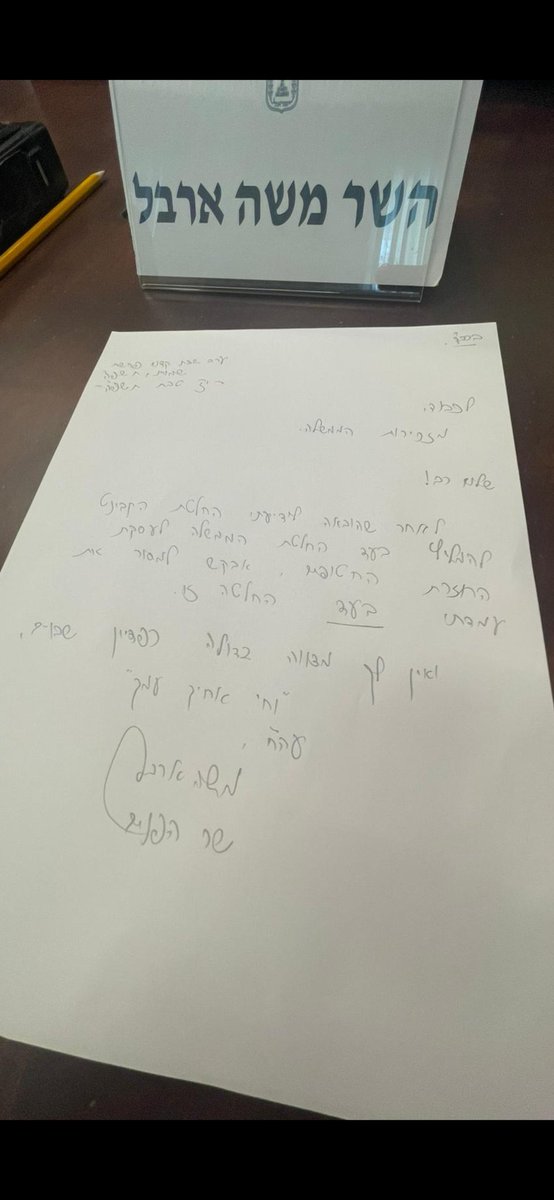 השר משה ארבל
בס״ד.
ערב שבת קודש פרשת
שמות, ה׳תשפ״ה
י״ז טבת ה׳תשפ״ה
לכבוד,
מזכירות הממשלה.
שלום רב!
לאחר שהובאה לידיעתי החלטת הקבינט
להמליץ בעד החלטת הממשלה לעסקת
החזרת החטופים, אבקש למסור את
עמדתי בעד החלטה זו.
ואין לך מצווה גדולה כפדיון שבויים,
"וחי אחיך עמך"
עה״ח,
משה ארבל
שר הפנים